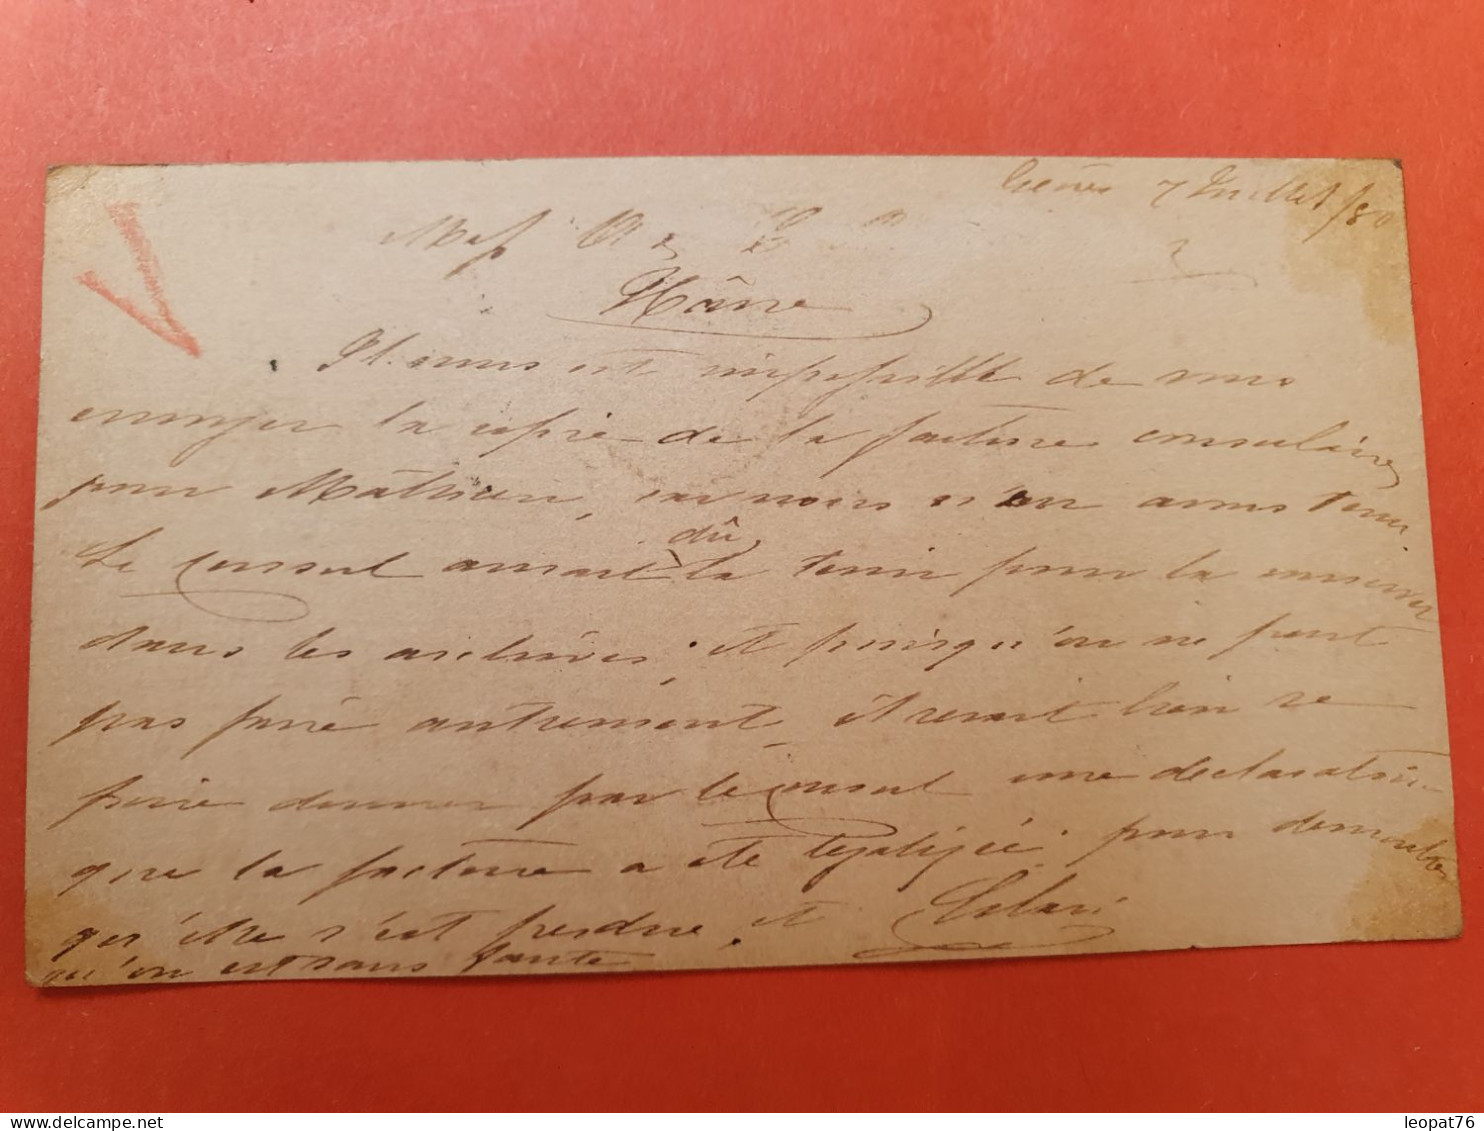 Gênes 7 Juillet /80
Mess
Hâvre
Il nous est impossible de vous
envoyer la copie de la facture consulaire
pour Mathieu, car nous n'en avons tenu
Le Consul aurait dû la tenir pour la conserver
dans les archives, et puisqu'on ne peut
pas faire autrement, il serait bien se
faire donner par le Consul une declaration
que la facture a été legalisée pour demontrer
qu'elle s'est perdue, et
qu'on est sans faute
leopat76
www.delcampe.net